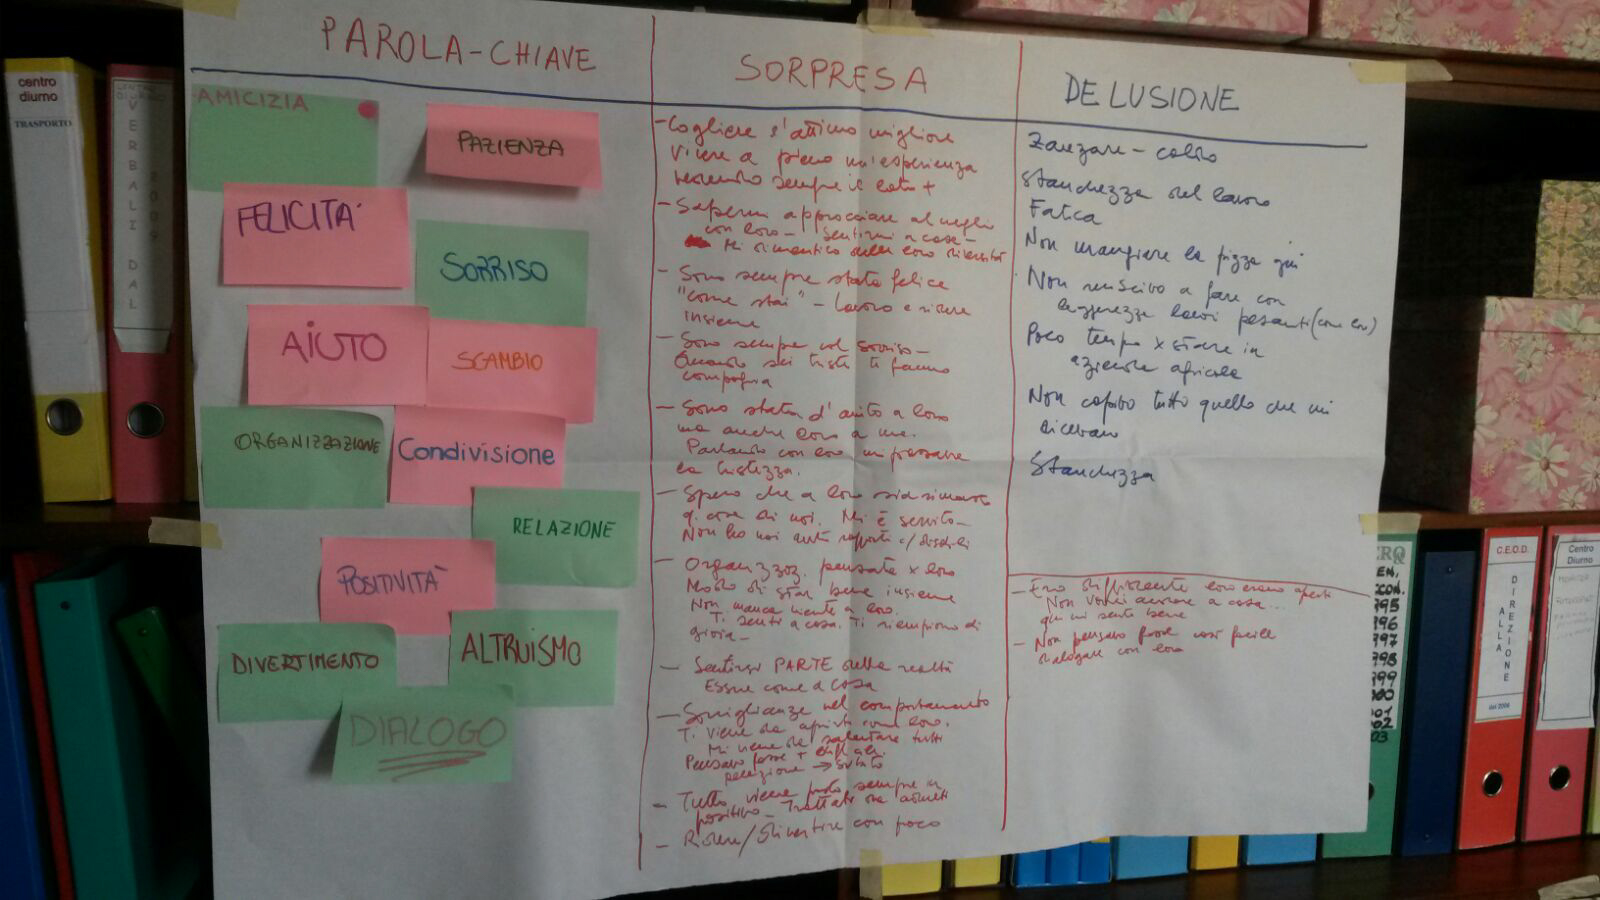 PAROLA-CHIAVE
SORPRESA
DELUSIONE
AMICIZIA
PAZIENZA
FELICITA'
SORRISO
AIUTO
SCAMBIO
ORGANIZZAZIONE
Condivisione
RELAZIONE
POSITIVITÀ
DIVERTIMENTO
ALTRUISMO
DIALOGO
- Cogliere l'attimo migliore
Vivere a pieno un'esperienza
tenendo sempre il lato +
- Sapermi approcciare al meglio
con loro - sentirmi a casa -
Mi dimentico della loro
- Sono sempre stata felice
"come stai" - Lavoro e ridere
insieme
- Sono sempre col sorriso -
Quando sei triste ti fanno
compagnia
- Sono stata d'aiuto a loro
ma anche loro a me.
Parlando con loro mi passava
la tristezza.
- Spero che a loro sia rimasto
q. cosa di noi. Mi è servito -
Non ho mai avuto rapporti c/ disabili
- Organizzaz. pensata x loro
Modo di star bene insieme
Non manca niente a loro.
Ti senti a casa. Ti riempiono di
gioia -
- Sentirsi PARTE della realtà
Essere come a casa
- Somiglianze nel comportamento
Ti viene da aprirti con loro.
Mi viene da salutare tutti
Pensavo fosse + diff.
→ subito
- Tutto viene posto sempre in
positivo - Trattati da adulti
- Ridere/Divertire con poco
Zanzare - caldo
Stanchezza del lavoro
Fatica
Non mangiare la pizza qui
Non riuscivo a fare con
leggerezza lavori pesanti (come loro)
Poco tempo x stare in
azienda agricola
Non capivo tutto quello che mi
dicevano
Stanchezza
- Ero diffidente loro erano aperti
Non vorrei andare a casa...
qui mi sento bene
- Non pensavo fosse così facile
dialogare con loro
centro
diurno
TRASPORTO
CENTRO
DIURNO
VERBALI DAL
2009
EN.
CON.
995
996
997
998
999
000
001
002
003
C.E.O.D.
DIREZIONE
ALLA
dal 2006
Centro
Diurno